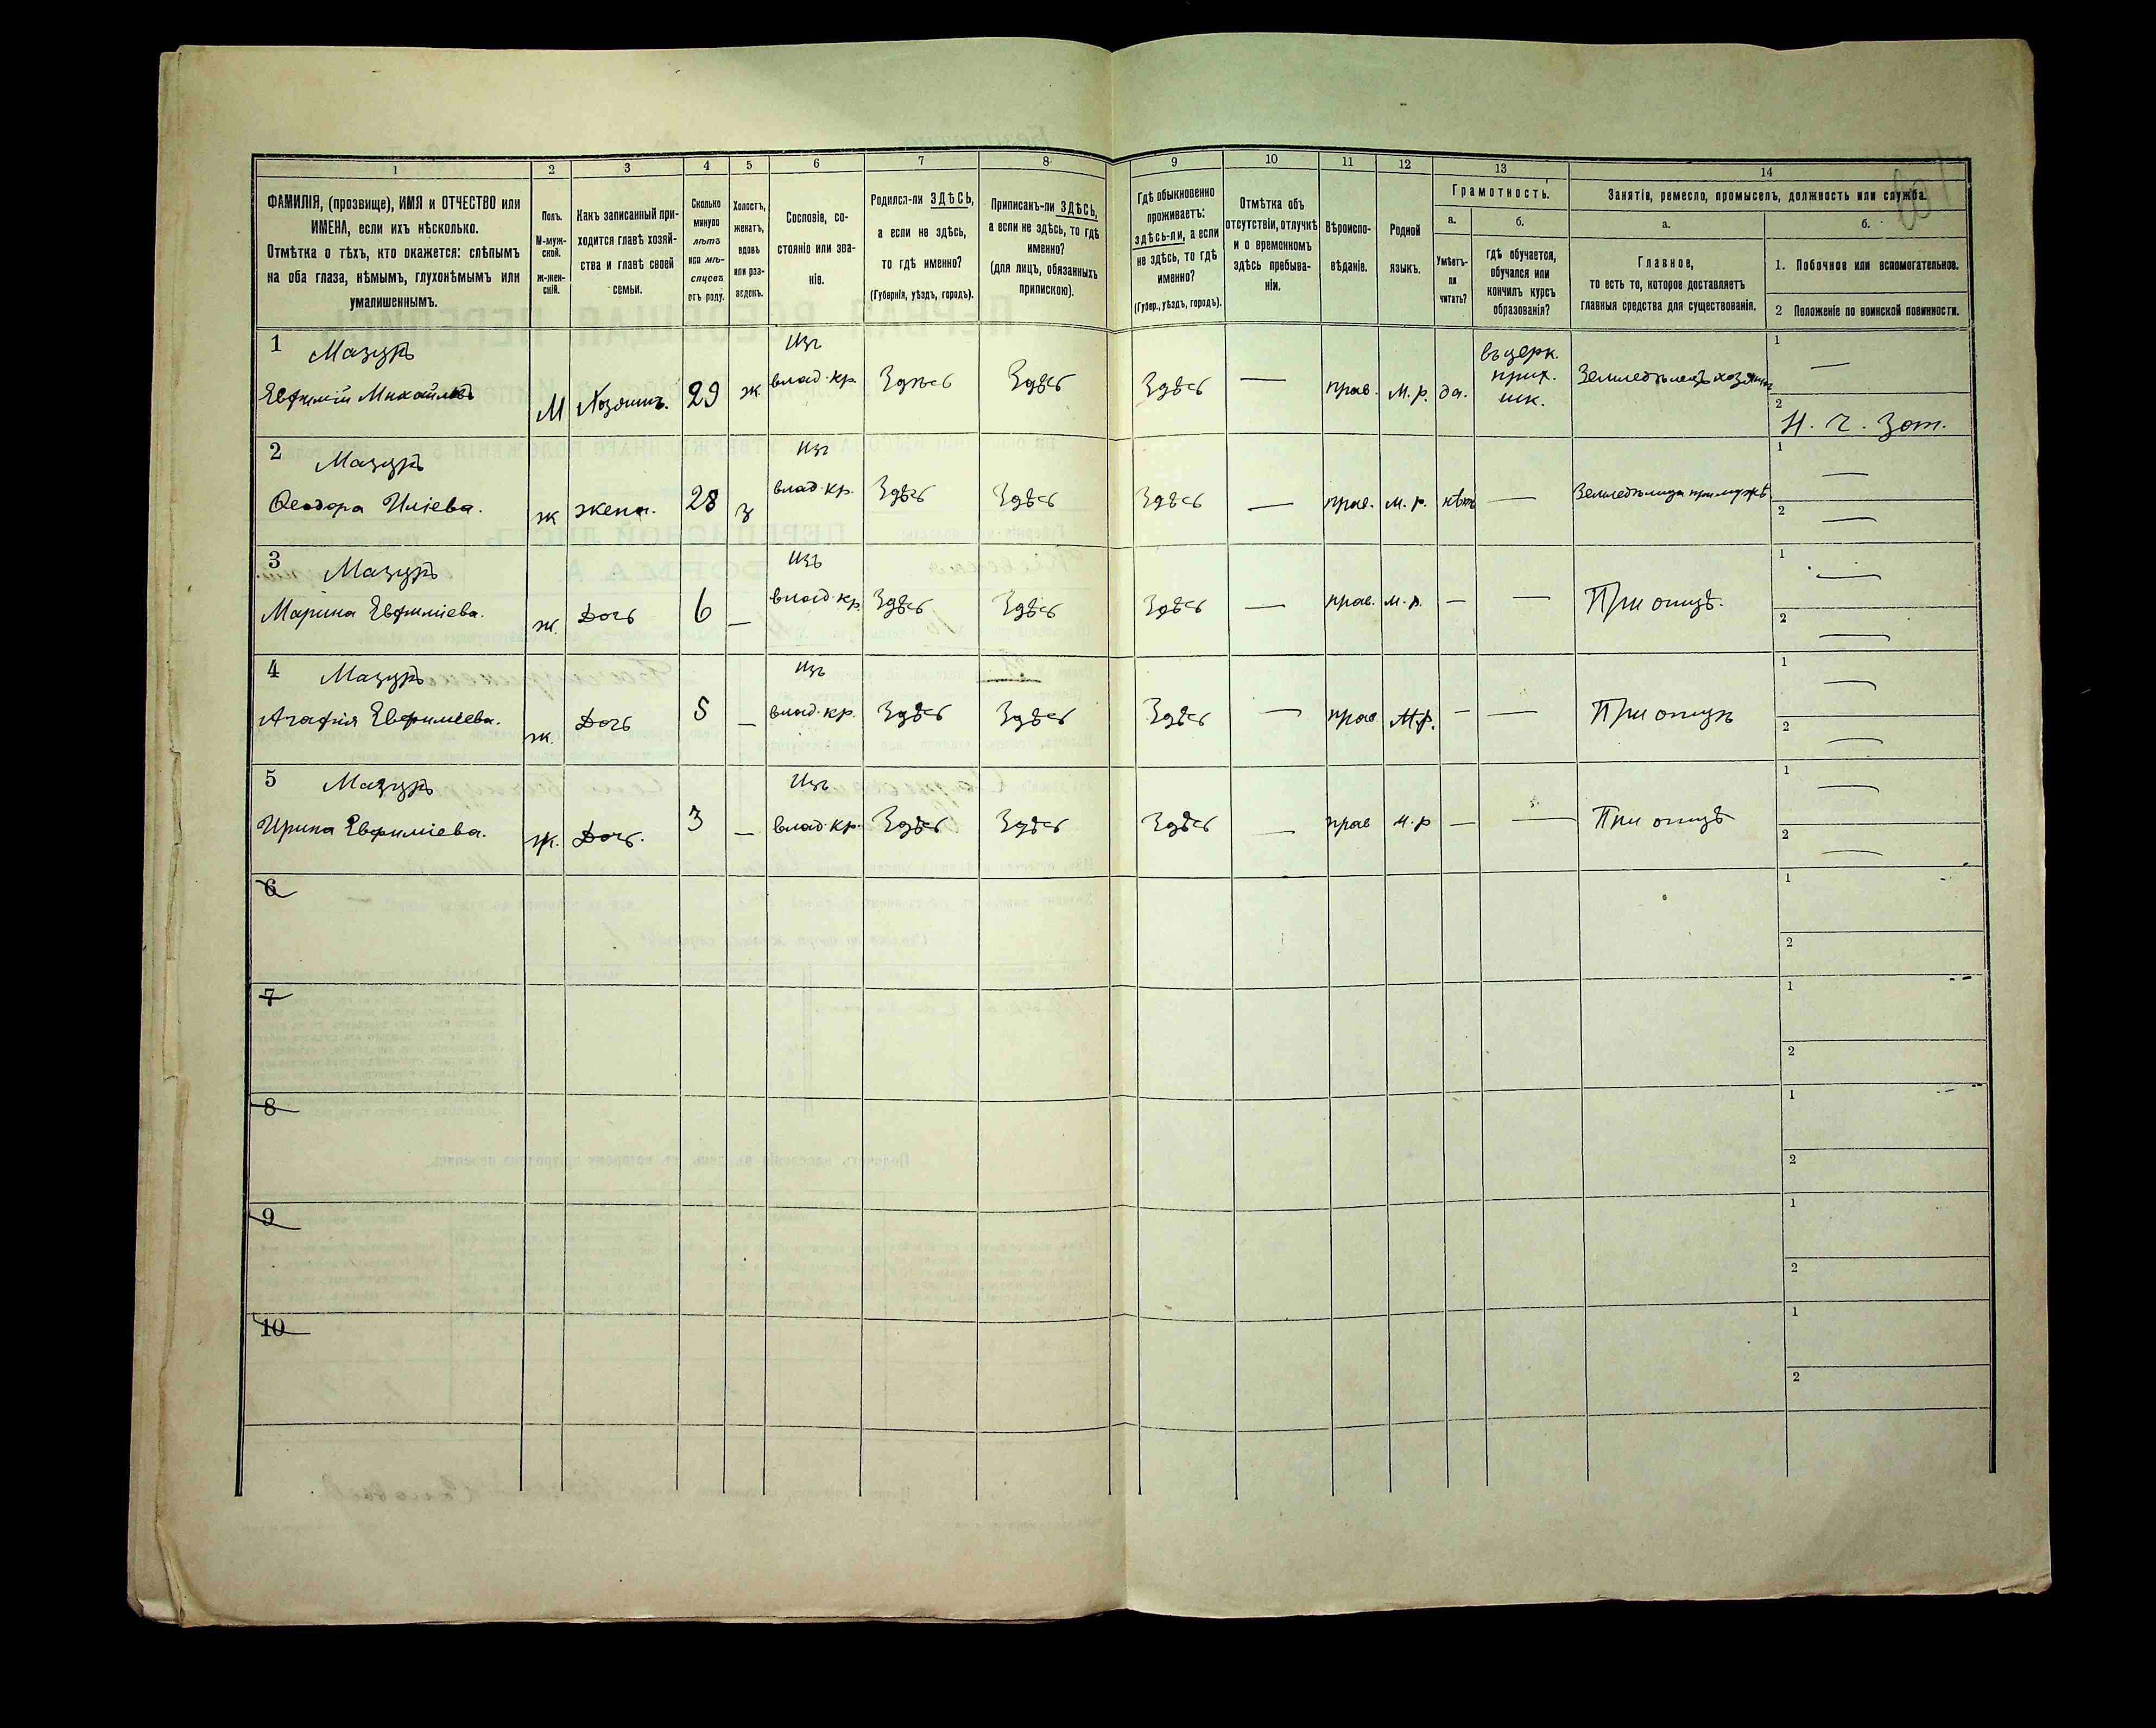 1 2 3 4 5 6 7 8 9 10 11 12 13 14
ФАМИЛІЯ, (прозвище), ИМЯ и ОТЧЕСТВО или
ИМЕНА, если ихъ нѣсколько.
Отмѣтка о тѣхъ, кто окажется: слѣпымъ
на оба глаза, нѣмымъ, глухонѣмымъ или
умалишеннымъ.
Полъ.
М-муж-
ской.
Ж-жен-
скій.
Какъ записанный при-
ходится главѣ хозяй-
ства и главѣ своей
семьи.
Сколько
минуло
лѣтъ
или мѣ-
сяцевъ
отъ роду.
Холостъ,
женатъ,
вдовъ
или раз-
веденъ.
Сословіе, со-
стояніе или зва-
ніе.
Родился-ли ЗДѢСЬ,
а если не здѣсь,
то гдѣ именно?
(Губернія, уѣздъ, городъ).
Приписанъ-ли ЗДѢСЬ,
а если не здѣсь, то гдѣ
именно?
(для лицъ, обязанныхъ
припискою).
Гдѣ обыкновенно
проживаетъ:
здѣсь-ли, а если
не здѣсь, то гдѣ
именно?
(Губер., уѣздъ, городъ).
Отмѣтка объ
отсутствіи, отлучкѣ
и о временномъ
здѣсь пребыва-
ніи.
Вѣроиспо-
вѣданіе.
Родной
языкъ.
Грамотность.
а.
Умѣетъ-
ли
читать?
б.
гдѣ обучается,
обучался или
кончилъ курсъ
образованія?
Занятія, ремесло, промыселъ, должность или служба.
а.
Главное,
то есть то, которое доставляетъ
главныя средства для существованія.
б.
1. Побочное или вспомогательное.
2 Положеніе по воинской повинности.
1 Мазуръ изъ въ церк. 1 —
Евфимій Михайловъ М Хозяинъ. 29 ж. влад. кр. Здѣсь Здѣсь Здѣсь — прав. м. р. да. прих. Земледѣлецъ хозяинъ
шк. 2 Н. ч. Зот.
2 Мазуръ изъ 1 —
Ѳеодора Иліева. ж жена. 28 з влад. кр. Здѣсь Здѣсь Здѣсь — прав. м. р. нѣтъ — Земледѣлица при мужѣ
2 —
3 Мазуръ изъ 1 —
Марина Евфиміева. ж. Дочь 6 — влад. кр. Здѣсь Здѣсь Здѣсь — прав. м. р. — — При отцѣ.
2 —
4 Мазуръ изъ 1 —
Агафія Евфиміева. ж. Дочь 5 — влад. кр. Здѣсь Здѣсь Здѣсь — прав М. р. — — При отцѣ
2 —
5 Мазуръ Изъ 1 —
Ирина Евфиміева. ж. Дочь. 3 — влад. кр. Здѣсь Здѣсь Здѣсь — прав м. р — — При отцѣ
2 —
6 1
2
7 1
2
8 1
2
9 1
2
10 1
2